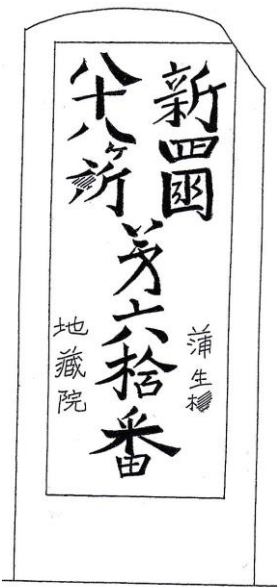 新四國
八十八ヶ所
第六拾番
蒲生
地藏院